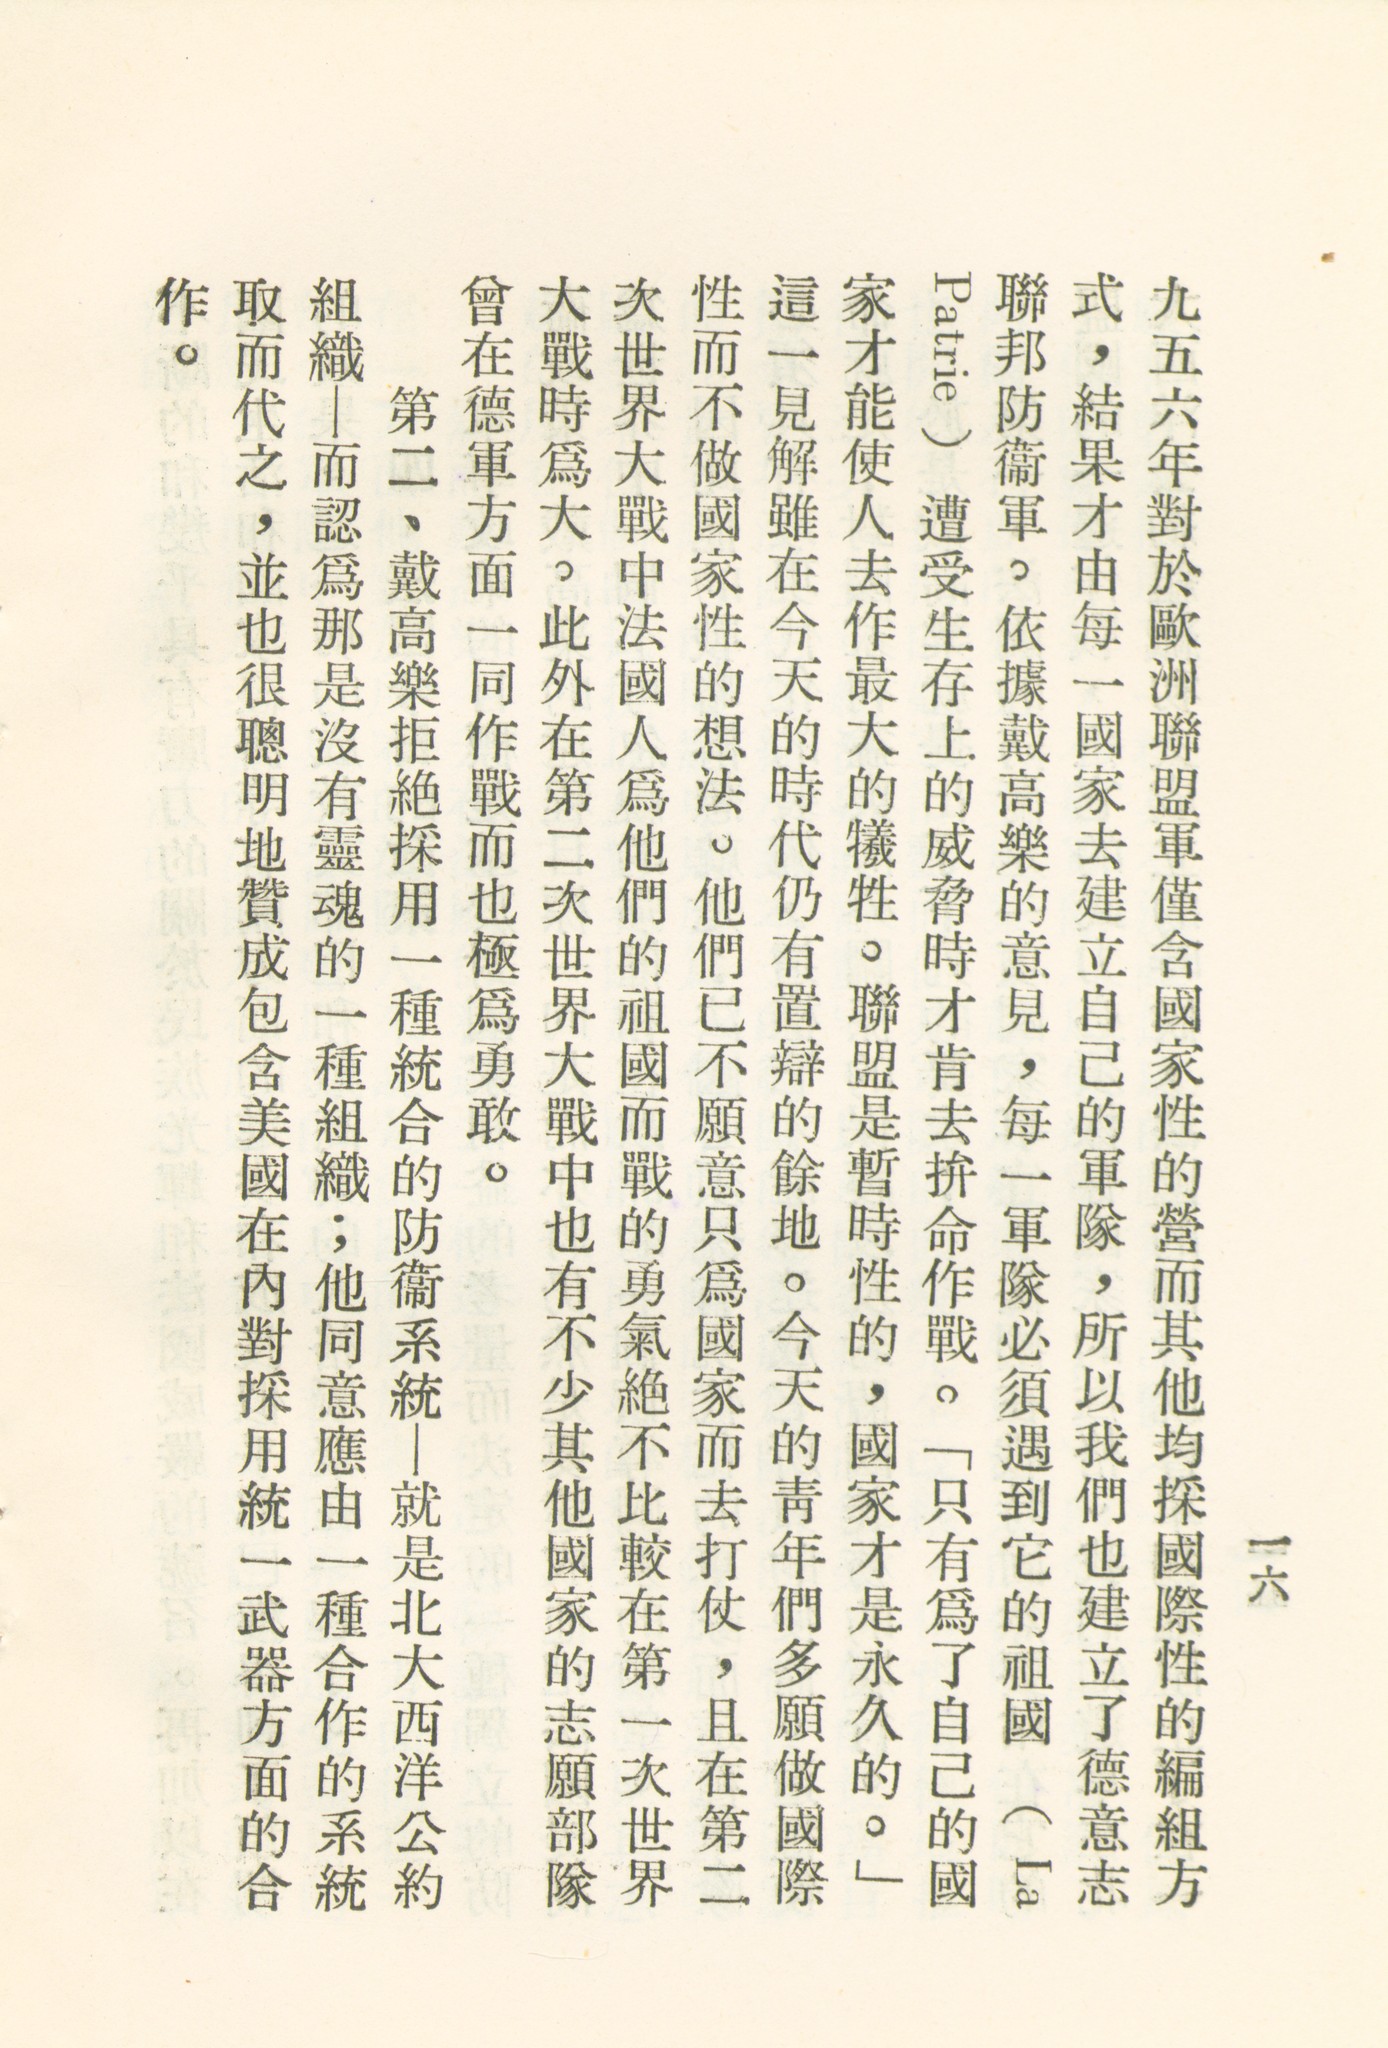 九五六年對於歐洲聯盟軍僅含國家性的營而其他均採國際性的編組方
式，結果才由每一國家去建立自己的軍隊，所以我們也建立了德意志
聯邦防衞軍。依據戴高樂的意見，每一軍隊必須遇到它的祖國（La
Patrie）遭受生存上的威脅時才肯去拚命作戰。「只有爲了自己的國
家才能使人去作最大的犧牲。聯盟是暫時性的，國家才是永久的。」
這一見解雖在今天的時代仍有置辯的餘地。今天的靑年們多願做國際
性而不做國家性的想法。他們已不願意只爲國家而去打仗，且在第二
次世界大戰中法國人爲他們的祖國而戰的勇氣絕不比較在第一次世界
大戰時爲大。此外在第二次世界大戰中也有不少其他國家的志願部隊
曾在德軍方面一同作戰而也極爲勇敢。
第二、戴高樂拒絕採用一種統合的防衞系統—就是北大西洋公約
組織—而認爲那是沒有靈魂的一種組織；他同意應由一種合作的系統
取而代之，並也很聰明地贊成包含美國在內對採用統一武器方面的合
作。
一六